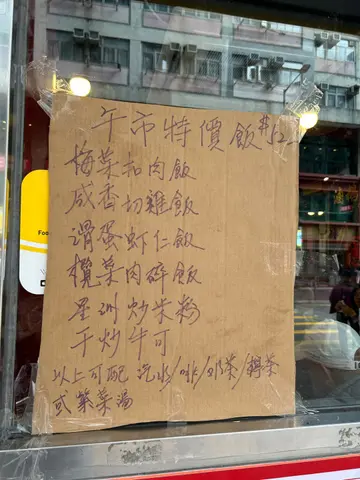 午市特價飯 $12-
梅菜扣肉飯
咸香切雞飯
滑蛋虾仁飯
欖菜肉碎飯
星洲炒米粉
干炒牛可
以上可配 汽水/啡/奶茶/檸茶
或紫菜湯